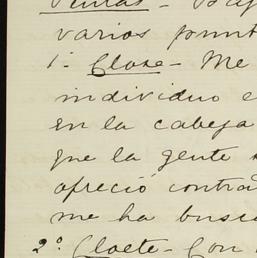 Ventas -
varios punt
1.- Close - Me
individuo e
en la cabeza
que la gente
ofreció contra
me ha busca
2º Cloete - Con